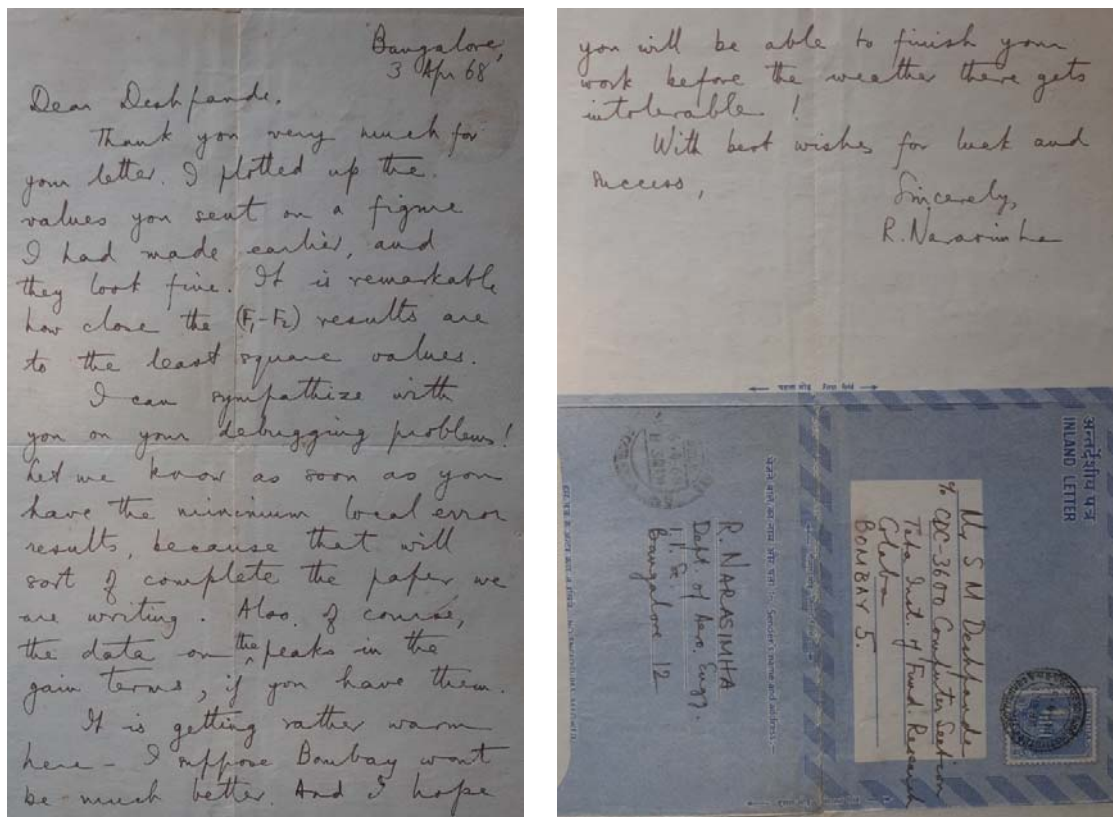 Bangalore,
3 Apr 68
Dear Deshpande.
Thank you very much for
your letter. I plotted up the
values you sent on a figure
I had made earlier, and
they look fine. It is remarkable
how close the (F₁-F₂) results are
to the least square values.
I can sympathize with
you on your debugging problems!
Let me know as soon as you
have the minimum local error
results, because that will
sort of complete the paper we
are writing. Also, of course,
the data on the peaks in the
gain terms, if you have them.
It is getting rather warm
here - I suppose Bombay won't
be much better. And I hope
you will be able to finish your
work before the weather there gets
intolerable!
With best wishes for luck and
success,
Sincerely,
R. Narasimha
पहला मोड़ First fold
अन्तर्देशीय पत्र
INLAND LETTER
Mr S M Deshpande
c/o CDC-3600 Computer Section
Tata Inst. of Fund Research
Colaba
BOMBAY 5.
Sender's name and address:-
R. NARASIMHA
Dept. of Aero. Engg.
I.I.Sc.
Bangalore 12